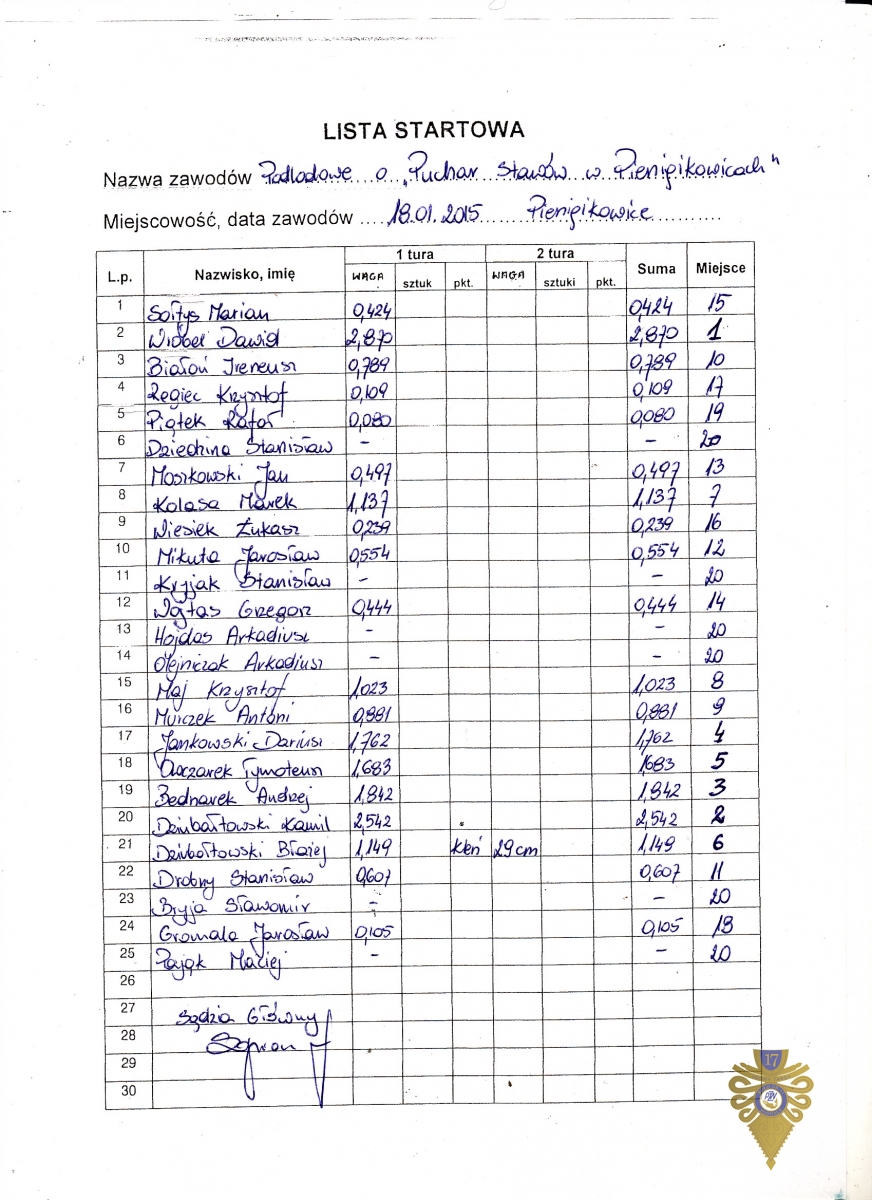 LISTA STARTOWA
Nazwa zawodów Podlodowe o „Puchar Stawów w Pienigikowicach"
Miejscowość, data zawodów 18.01.2015 Pienigikowice
L.p. Nazwisko, imię 1 tura 2 tura Suma Miejsce
WAGA sztuk pkt. WAGA sztuki pkt.
1 Sołtys Marian 0,424 0,424 15
2 Wróbel Dawid 2,870 2,870 1
3 Białoń Ireneusz 0,789 0,789 10
4 Regiec Krzysztof 0,109 0,109 17
5 Piątek Rafał 0,080 0,080 19
6 Dziechina Stanisław – – 20
7 Moszkowski Jan 0,497 0,497 13
8 Kolasa Marek 1,137 1,137 7
9 Wiesiek Łukasz 0,239 0,239 16
10 Mikuta Jarosław 0,554 0,554 12
11 Kryjak Stanisław – – 20
12 Wojtas Grzegorz 0,444 0,444 14
13 Hojdas Arkadiusz – – 20
14 Olejniczak Arkadiusz – – 20
15 Maj Krzysztof 1,023 1,023 8
16 Murczek Antoni 0,881 0,881 9
17 Jankowski Dariusz 1,762 1,762 4
18 Owczarek Tymoteusz 1,683 1,683 5
19 Bednarek Andrzej 1,842 1,842 3
20 Dziubałtowski Kamil 2,542 2,542 2
21 Dziubałtowski Błażej 1,149 kleń 29cm 1,149 6
22 Drobny Stanisław 0,607 0,607 11
23 Bryja Sławomir – – 20
24 Gromala Jarosław 0,105 0,105 18
25 Pająk Maciej – – 20
26
27 Sędzia Główny
28
29
30
17